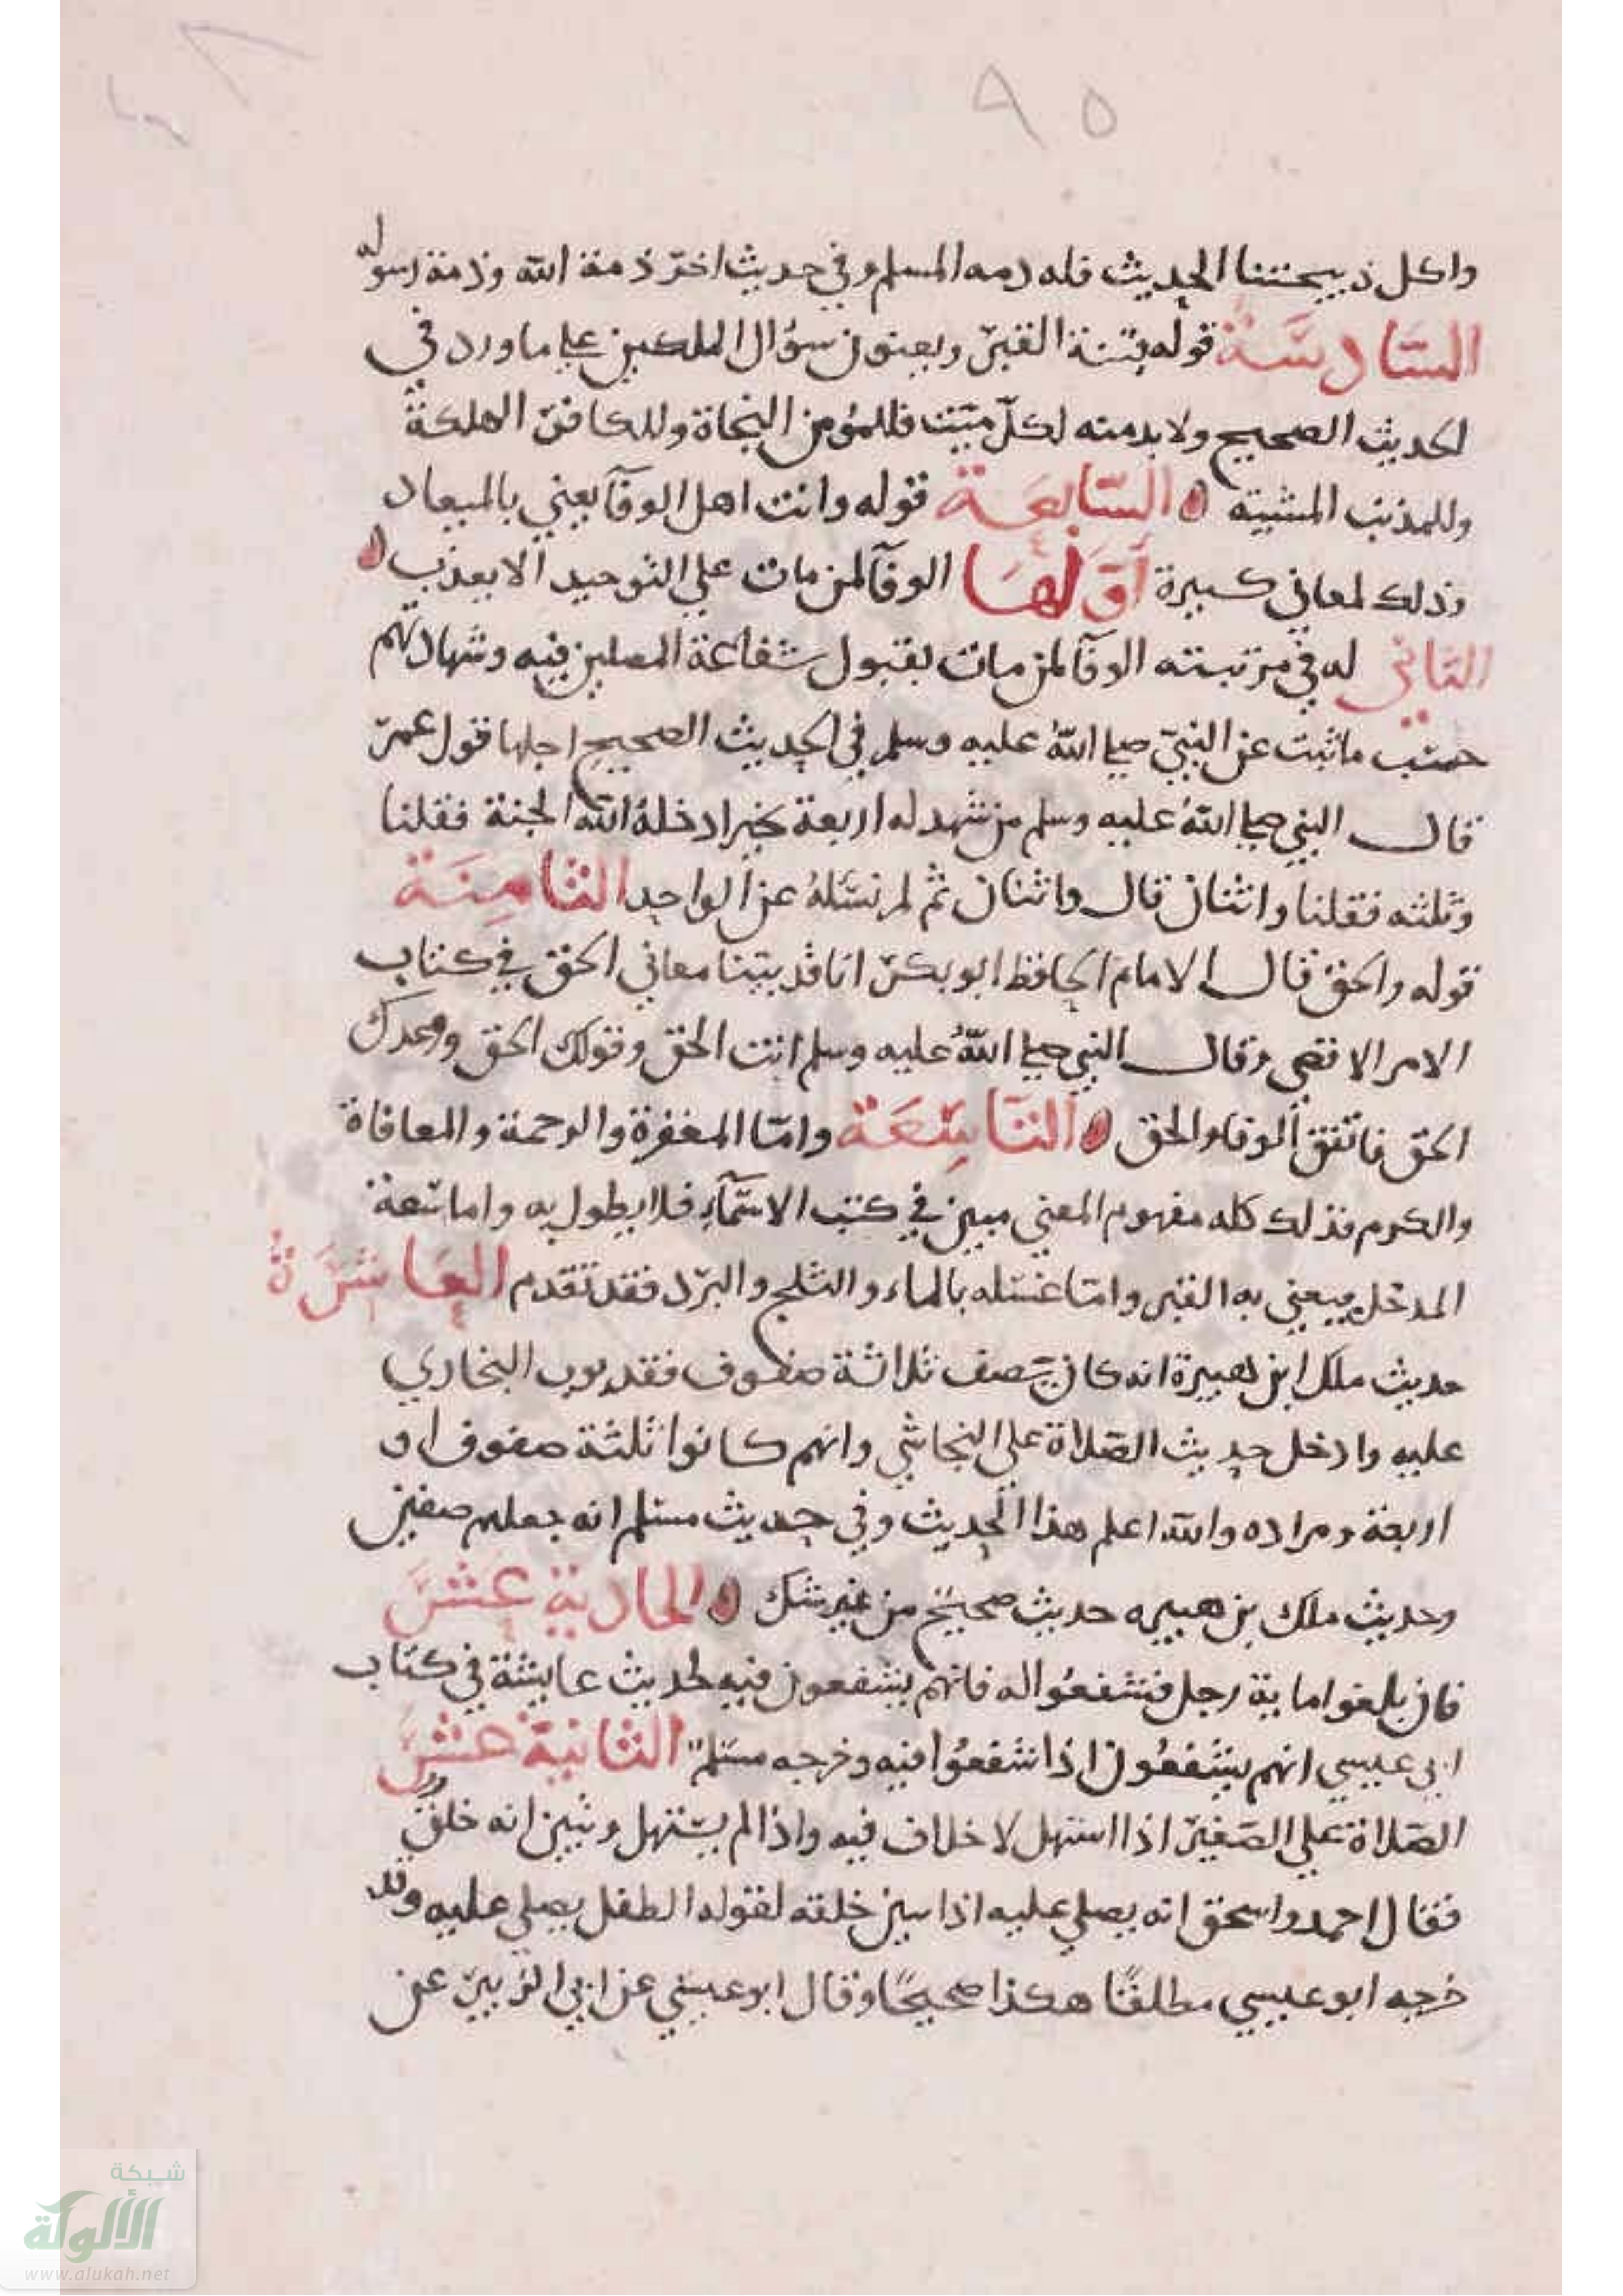 ٩٥
واكل ذبيحتنا الحديث فله ذمه المسلم وفي حديث اخر ذمة الله وذمة رسوله
السادسة قوله فتنة القبر ويعنون سؤال الملكين علي ما ورد في
الحديث الصحيح ولا بد منه لكل ميت فللمؤمن النجاة وللكافر الهلكة
وللمذنب المشية السابعة قوله وانت اهل الوفآ يعني بالميعاد
وذلك لمعاني كبيرة اولها الوفآ لمن مات علي التوحيد الا يعذب
الثاني له في مرتبته الوفآ لمن مات بقبول شفاعة المصلين فيه وشهادتهم
حسب ما ثبت عن النبي صلي الله عليه وسلم في الحديث الصحيح اجلها قول عمر
قال النبي صلي الله عليه وسلم من شهد له اربعة بخير ادخله الله الجنة فقلنا
وثلثه فقلنا واثنان قال واثنان ثم لم نسئله عن الواحد الثامنة
قوله والحق قال الامام الحافظ ابو بكر انا قد بينا معاني الحق في كتاب
الامر الاقصي وقال النبي صلي الله عليه وسلم انت الحق وقولك الحق ووعدك
الحق فاتفق الوفا والحق التاسعة واما المغفرة والرحمة والمعافاة
والكرم فذلك كله مفهوم المعني مبين في كتب الاسمآء فلا يطول به واما سعة
المدخل فيعني به القبر واما غسله بالماء والثلج والبرد فقد تقدم العاشرة
حديث ملك ابن هبيرة انه كان يصف ثلاثة صفوف فقد بوب البخاري
عليه وادخل حديث الصلاة علي النجاشي وانهم كانوا ثلثة صفوف او
اربعة ومراده والله اعلم هذا الحديث وفي حديث مسلم انه جعلهم صفين
وحديث ملك بن هبيره حديث صحيح من غير شك الحادية عشر
فان بلغوا ماية رجل فشفعوا له فانهم يشفعون فيه لحديث عايشة في كتاب
ابي عيسي انهم يشفعون اذا شفعوا فيه وخرجه مسلم الثانية عشر
الصلاة علي الصغير اذا استهل لا خلاف فيه واذا لم يستهل وتبين انه خلق
فقال احمد واسحق انه يصلي عليه اذا تبين خلقه لقوله الطفل يصلي عليه وقد
خرجه ابو عيسي مطلقًا هكذا صحيحًا وقال ابو عيسي عن ابي الزبير عن
شبكة
الألوكة
www.alukah.net